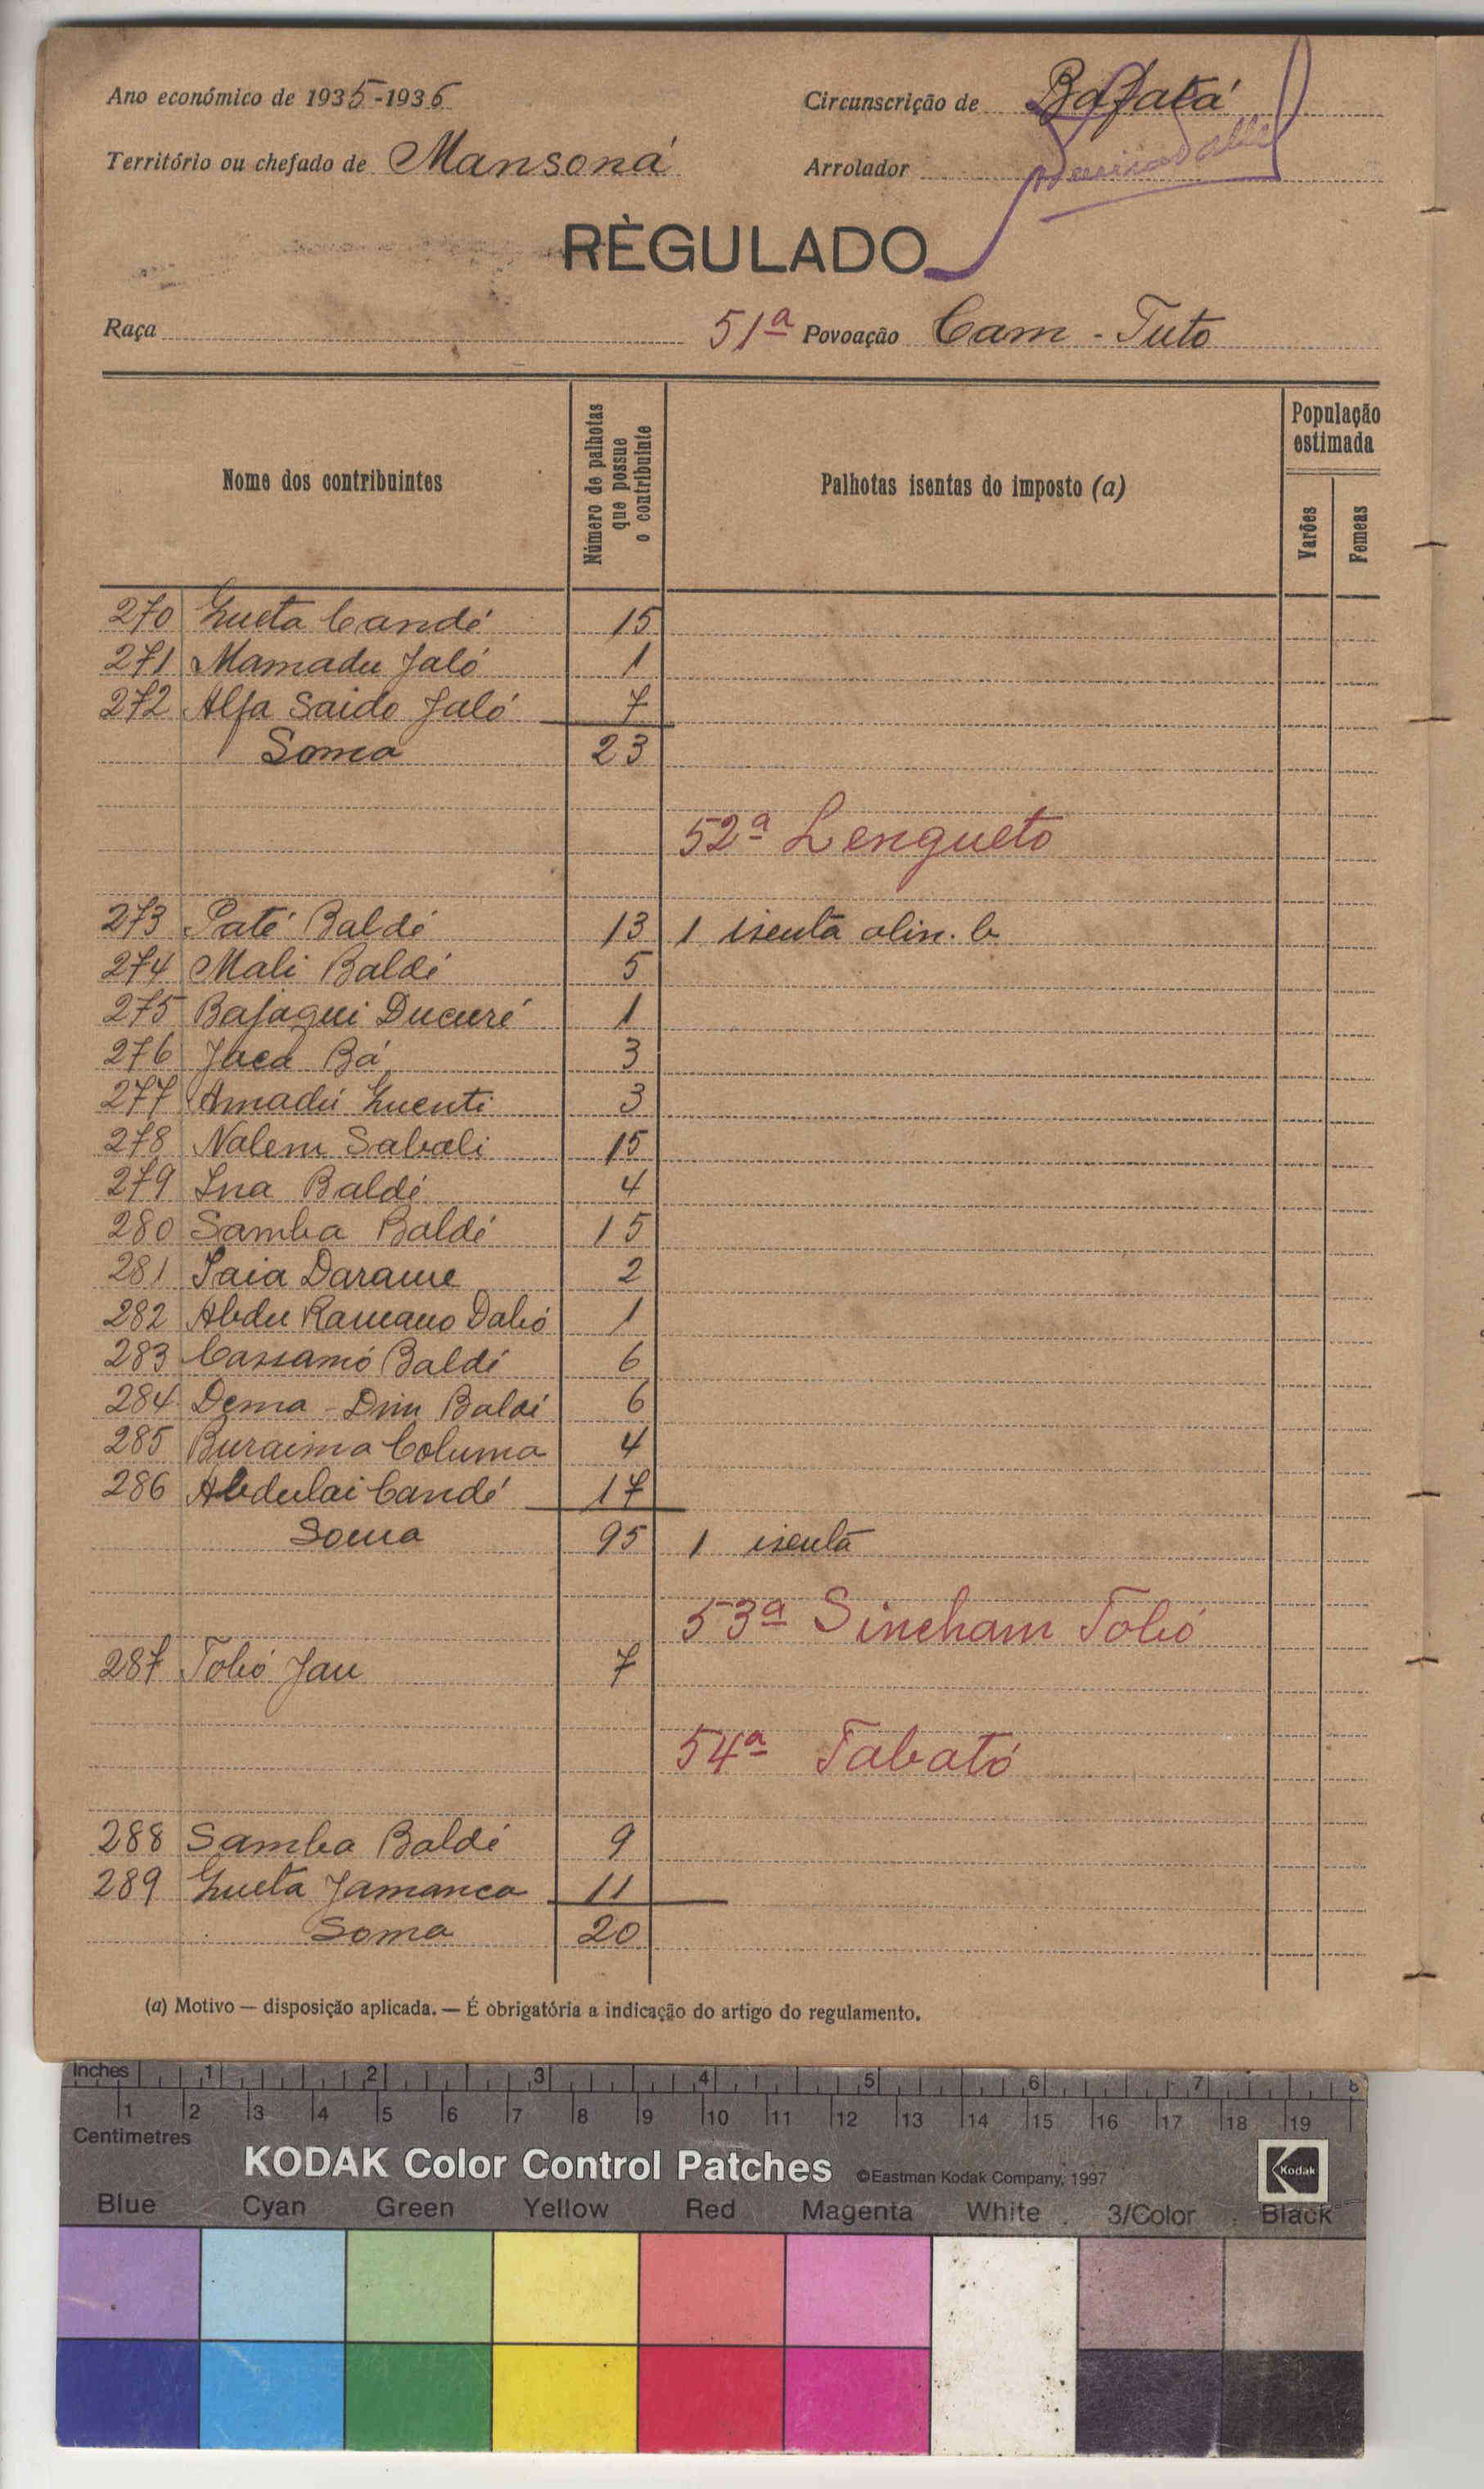 Ano económico de 1935-1936
Circunscrição de Bafatá
Território ou chefado de Mansoná
Arrolador
RÈGULADO
Raça
51ª Povoação Cam - Tuto
Nome dos contribuintes
Número de palhotas que possue o contribuinte
Palhotas isentas do imposto (a)
População estimada
Varões
Femeas
270 Gueta Candé 15
271 Mamadu Jaló 1
272 Alfa Saido Jaló 7
Soma 23
52ª Lengueto
273 Paté Baldé 13 1 isenta alin. b
274 Mali Baldé 5
275 Bajaqui Ducuré 1
276 Jaca Bá 3
277 Amadú Guenti 3
278 Nalem Sabali 15
279 Ina Baldé 4
280 Samba Baldé 15
281 Saia Darame 2
282 Abdu Ramano Dabó 1
283 Cassamó Baldé 6
284 Dema - Dim Baldé 6
285 Buraima Columa 4
286 Abdulai Candé 17
Soma 95 1 isenta
53ª Sincham Tobó
287 Tobó Jau 7
54ª Tabató
288 Samba Baldé 9
289 Gueta Jamanca 11
Soma 20
(a) Motivo — disposição aplicada. — É obrigatória a indicação do artigo do regulamento.
Inches 1 2 3 4 5 6 7 8
1 2 3 4 5 6 7 8 9 10 11 12 13 14 15 16 17 18 19
Centimetres
KODAK Color Control Patches ©Eastman Kodak Company, 1997 Kodak
Blue Cyan Green Yellow Red Magenta White 3/Color Black